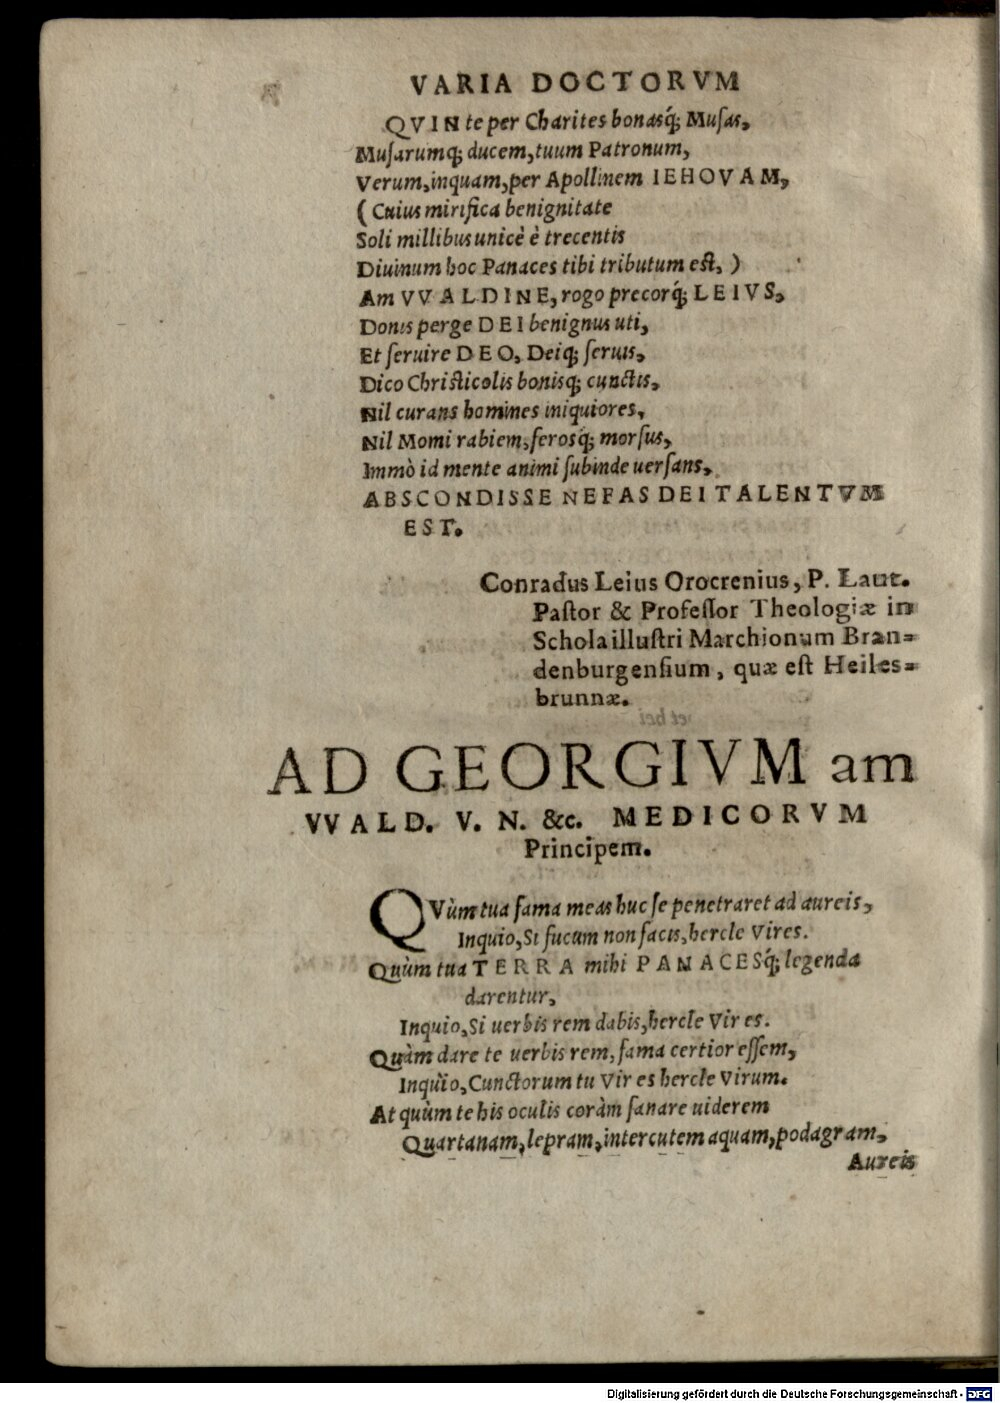 VARIA DOCTORVM
QVIN te per Charites bonasq́; Muſas,
Muſarumq; ducem, tuum Patronum,
Verum, inquam, per Apollinem IEHOVAM,
(Cuius mirifica benignitate
Soli millibus unicè è trecentis
Diuinum hoc Panaces tibi tributum eſt, )
Am VVALDINE, rogo precorq́; LEIVS,
Donis perge DEI benignus uti,
Et ſeruire DEO, Deiq; ſeruis,
Dico Chriſticolis bonisq; cunctis,
Nil curans homines iniquiores,
Nil Momi rabiem, ferosq; morſus,
Immò id mente animi ſubinde uerſans,
ABSCONDISSE NEFAS DEI TALENTVM
EST.
Conradus Leius Orocrenius, P. Laur.
Paſtor & Profeſſor Theologiæ in
Schola illuſtri Marchionum Bran=
denburgenſium, quæ eſt Heiles=
brunnæ.
AD GEORGIVM am
VVALD. V. N. &c. MEDICORVM
Principem.
QVùm tua fama meas huc ſe penetraret ad aureis,
Inquio, Si fucum non facis, hercle Vir es.
Quùm tua TERRA mihi PANACESq́; legenda
darentur,
Inquio, Si uerbis rem dabis, hercle Vir es.
Quàm dare te uerbis rem, fama certior eſſem,
Inquio, Cunctorum tu Vir es hercle Virum.
At quùm te his oculis coràm ſanare uiderem
Quartanam, lepram, intercutem aquam, podagram,
Aureis
Digitalisierung gefördert durch die Deutsche Forschungsgemeinschaft - DFG